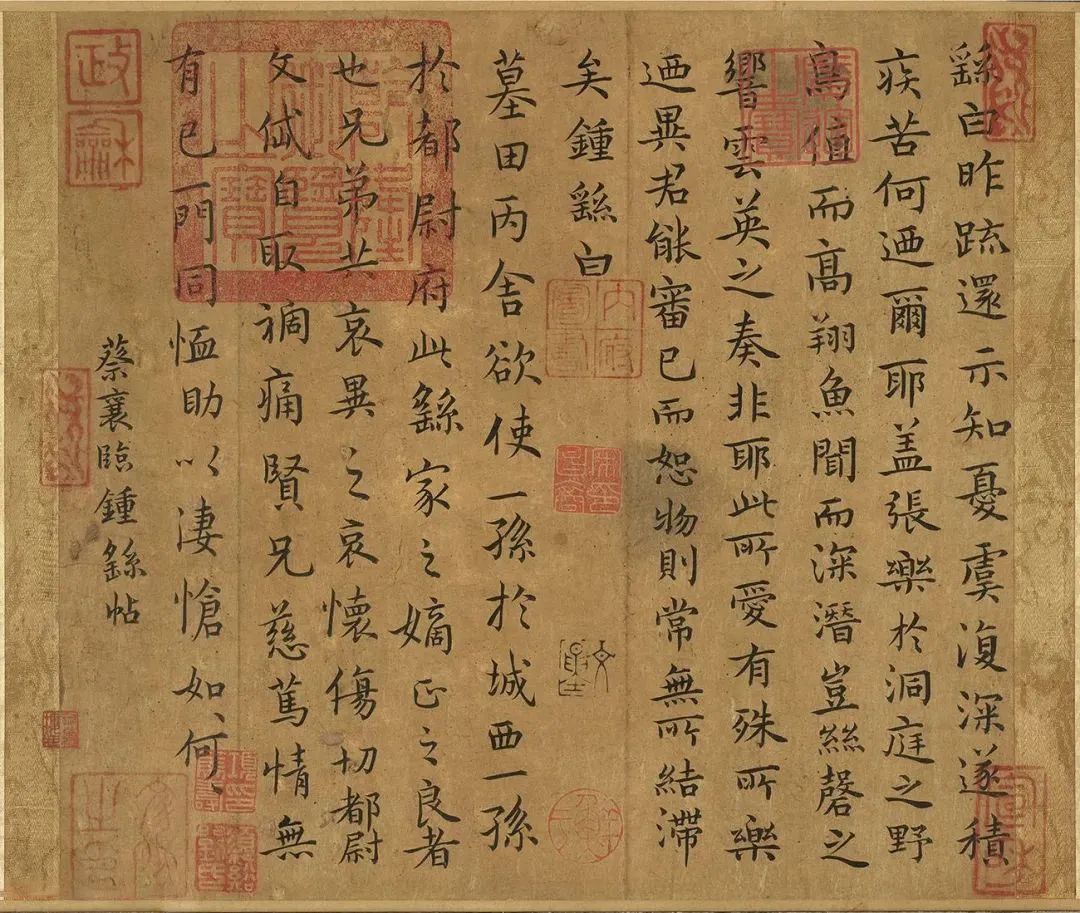 繇白昨疏還示知憂虞復深遂積
疾苦何迺爾耶盖張樂於洞庭之野
鳥值而高翔魚聞而深潛豈絲磬之
響雲英之奏非耶此所愛有殊所樂
迺異君能審己而恕物則常無所結滯
矣鍾繇白
墓田丙舍欲使一孫於城西一孫
於都尉府此繇家之嫡正之良者
也兄弟共哀異之哀懷傷切都尉
文岱自取禍痛賢兄慈篤情無
有已一門同恤助以淒愴如何、、
蔡襄臨鍾繇帖
政
龢
內府圖書